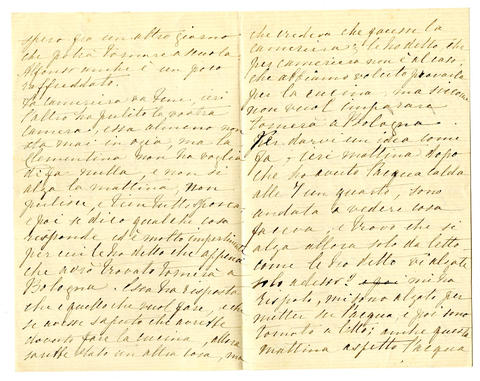 spero fra un altro giorno
che potrà tornare a scuola
Alfonso anche è un poco
raffreddato.
La cameriera va bene, ieri
l'altro ha pulito la vostra
camera, essa almeno non
sta mai in ozio, ma la
Clementina non ha voglia
di far nulla, e non si
alza la mattina, non
pulisce, e tien tutto sporco,
e poi se dico qualche cosa
risponde ed è molto impertinente
per cui le ho detto che appena
che avrò trovato tornerà a
Bologna. Essa ha risposto
che è quello che vuol fare, e che
se avesse saputo che avrebbe
dovuto fare la cucina, allora
sarebbe stato un altra cosa, ma
che credeva che fosse la
cameriera; le ho detto che
per cameriera non è al caso,
che abbiamo voluto provarla
per la cucina, ma siccome
non vuol imparare
tornerà a Bologna.
Per darvi un idea come
fa, ieri mattina dopo
che ho avuto l'acqua calda
alle 7 un quarto, sono
andata a vedere cosa
faceva, e trovo che si
alza allora solo da letto
come le ho detto vi alzate
solo adesso? e poi mi ha
risposto, mi sono alzata per
metter su l'acqua, e poi sono
tornata a letto; anche questa
mattina aspetto l'acqua